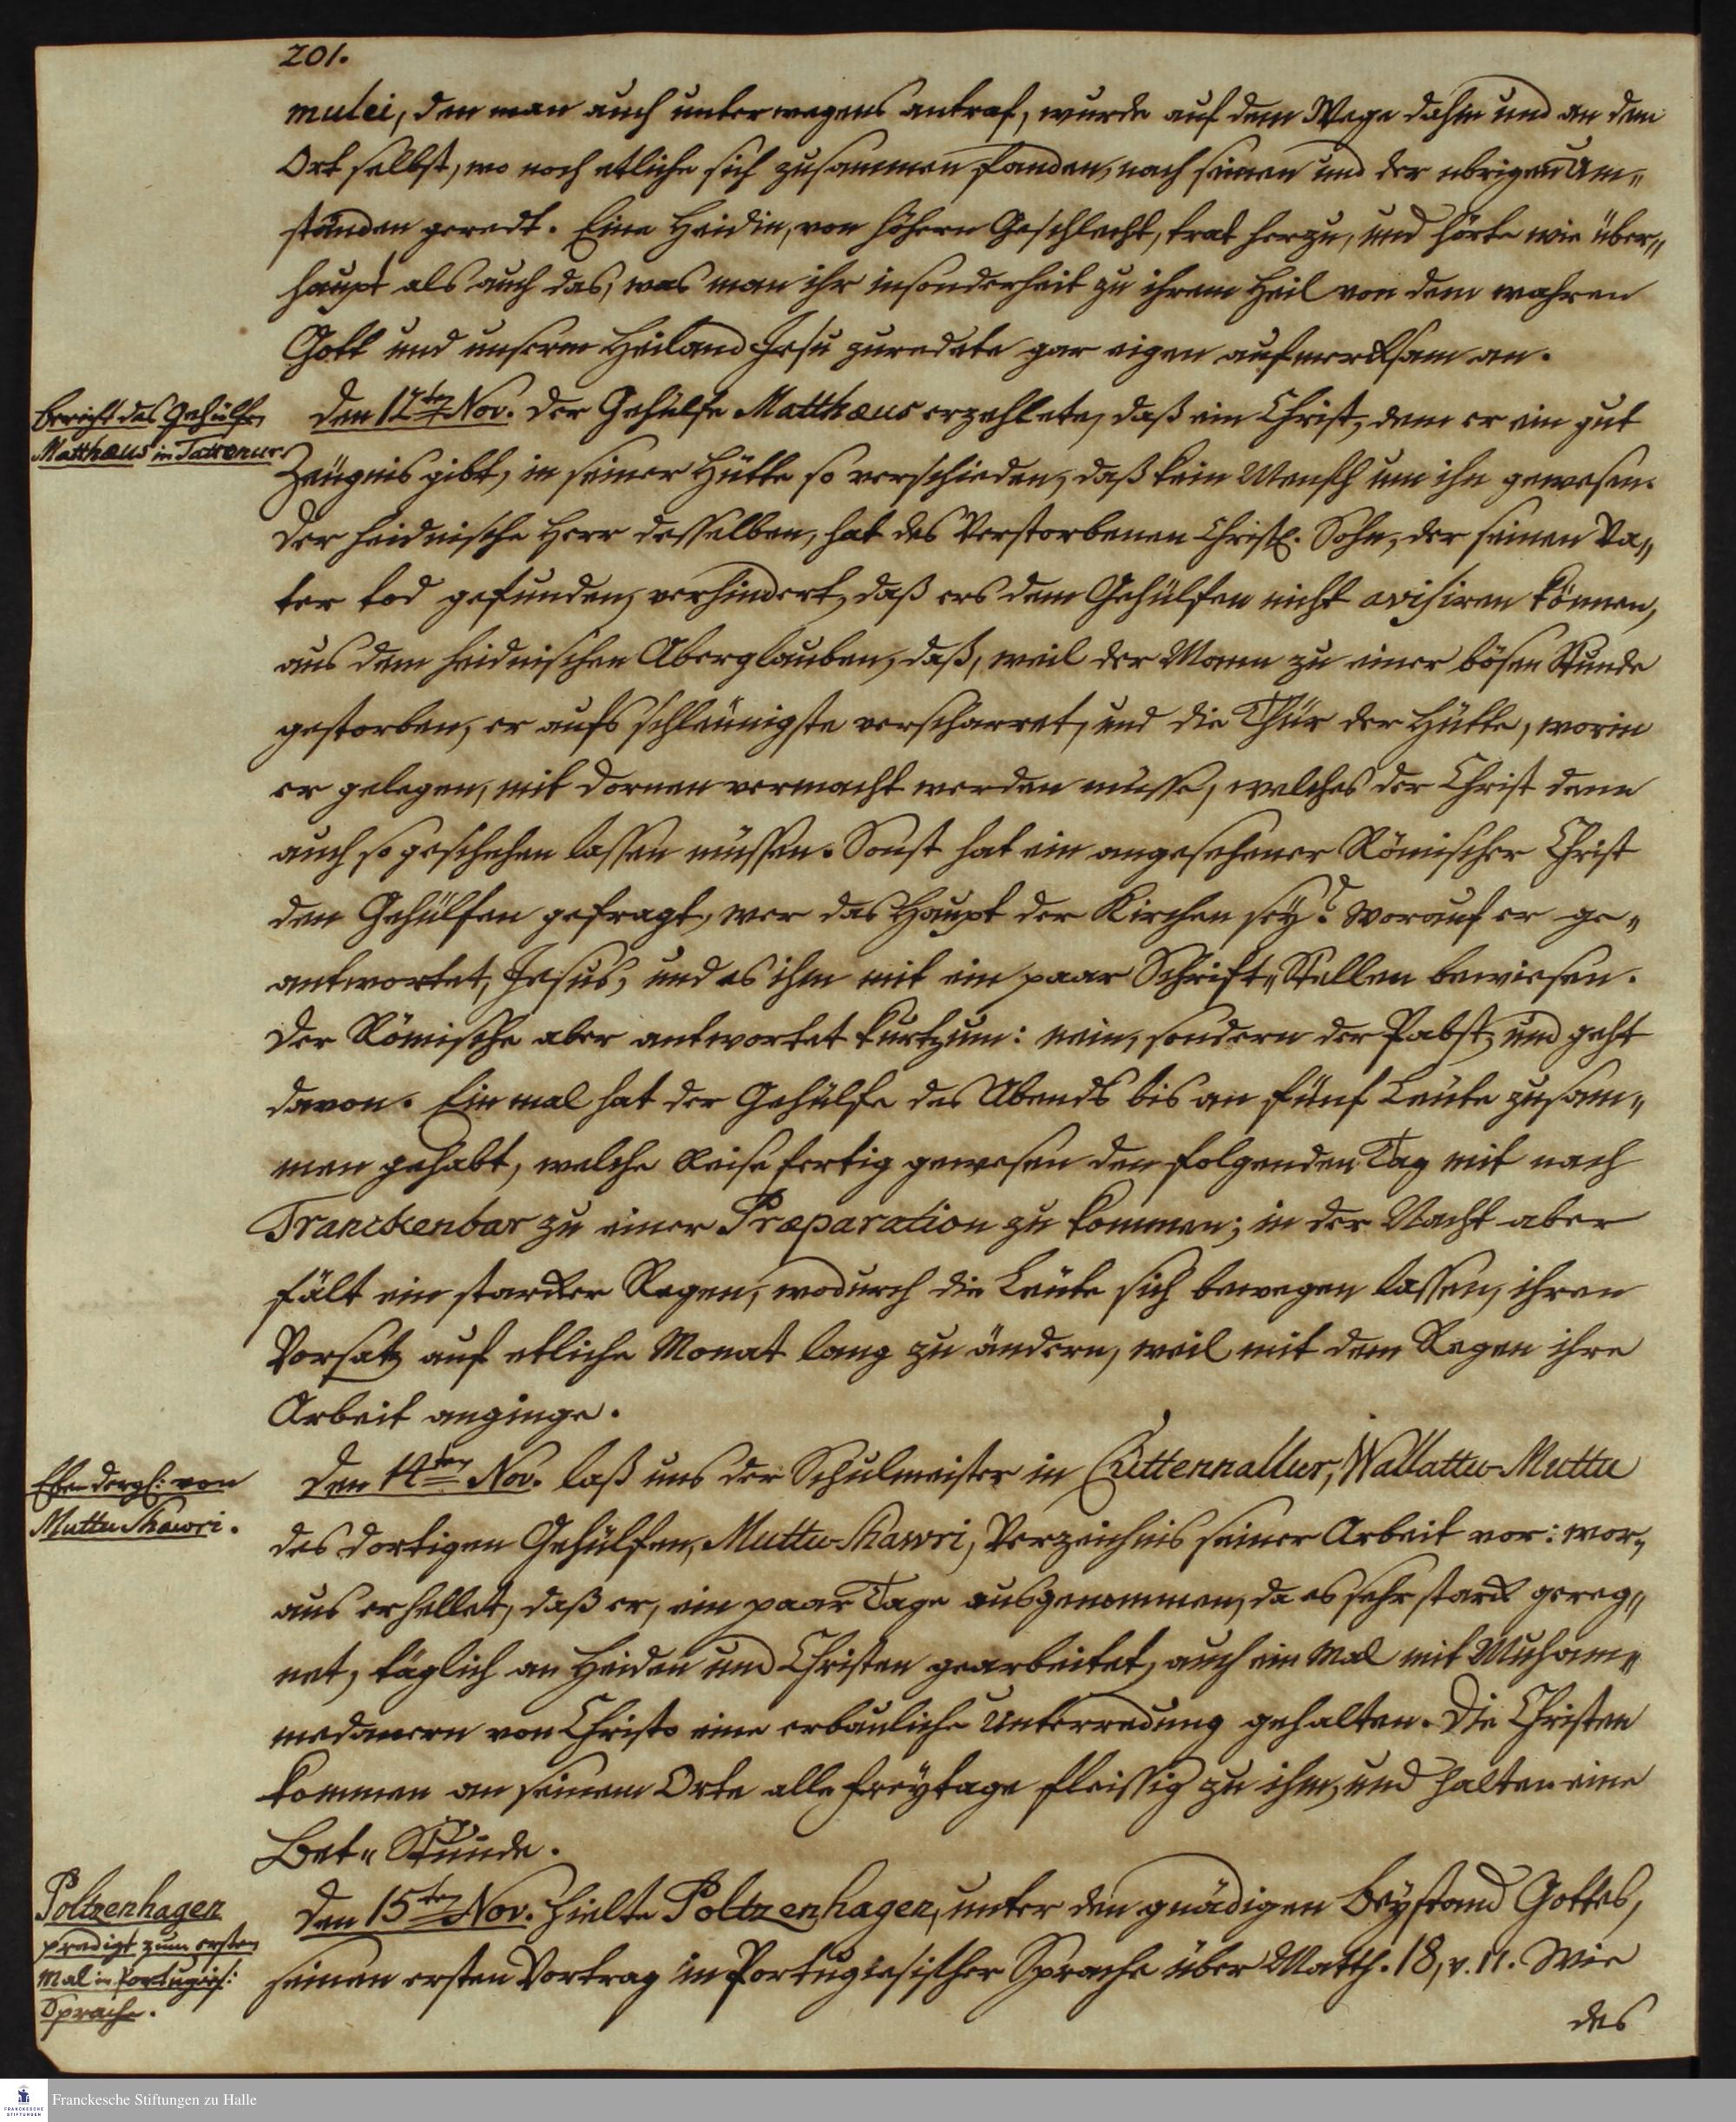 201.
mulei, den man auch unterwegens antraf, wurde auf dem Wege dahin und an dem
Ort selbst, wo noch etliche sich zusammen fanden, nach seinen und der übrigen Um„
ständen geredt. Eine Heidin, von höherm Geschlecht, trat herzu, und hörte wie über„
haupt als auch das, was man ihr insonderheit zu ihrem Heil von dem wahren
Gott und unserm Heiland Jesu zuredete gar eigen aufmercksam an.
Bericht des Gehülfen
Matthæus in Tattanur.
Den 12ten Nov. Der Gehülfe Matthæus erzehlete, daß ein Christ, dem er ein gut
Zeügnis gibt, in seiner Hütte so verschieden, daß kein Mensch um ihn gewesen.
Der heidnische Herr desselben, hat des Verstorbenen Christl. Sohn, der seinen Va„
ter tod gefunden, verhindert, daß ers dem Gehülfen nicht avisiren können,
aus dem heidnischen Aberglauben, daß, weil der Mann zu einer bösen Stunde
gestorben, er aufs schleünigste verscharret, und die Thür der Hütte, worin
er gelegen, mit Dornen vermacht werden müsse, welches der Christ denn
auch so geschehen lassen müssen. Sonst hat ein angesehener Römischer Christ
den Gehülfen gefragt, wer das Haupt der Kirchen sey? Worauf er ge„
antwortet, Jesus, und es ihm mit ein paar Schrift„Stellen bewiesen.
Der Römische aber antwortet kurtzum: nein, sondern der Pabst, und geht
davon. Ein mal hat der Gehülfe des Abends bis an fünf Leüte zusam„
men gehabt, welche Reise fertig gewesen den folgenden Tag mit nach
Tranckenbar zu einer Præparation zu kommen; in der Nacht aber
fält ein starcker Regen, wodurch die Leüte sich bewegen lassen, ihren
Vorsatz auf etliche Monat lang zu ändern, weil mit dem Regen ihre
Arbeit anginge.
Eben dergl: von
Muttu Shawri.
Den 14ten Nov. laß uns der Schulmeister in Cuttennallur, Wallattu-Muttu
des dortigen Gehülfen, Muttu-Shawri, Verzeichnis seiner Arbeit vor: wor„
aus erhellet, daß er, ein paar Tage ausgenommen, da es sehr starck gereg„
net, täglich an Heiden und Christen gearbeitet, auch ein Mal mit Muham„
medanern von Christo eine erbauliche Unterredung gehalten. Die Christen
kommen an seinem Orte alle Freytage fleissig zu ihm, und halten eine
Bet„Stunde.
Poltzenhagen
predigt zum ersten
Mal in Portugies:
Sprache.
Den 15ten Nov. hielte Poltzenhagen, unter den gnädigen Beystand Gottes,
seinen ersten Vortrag in Portugiesischer Sprache über Matth. 18, v. 11. Wie
des
FRANCKESCHE STIFTUNGEN
Franckesche Stiftungen zu Halle